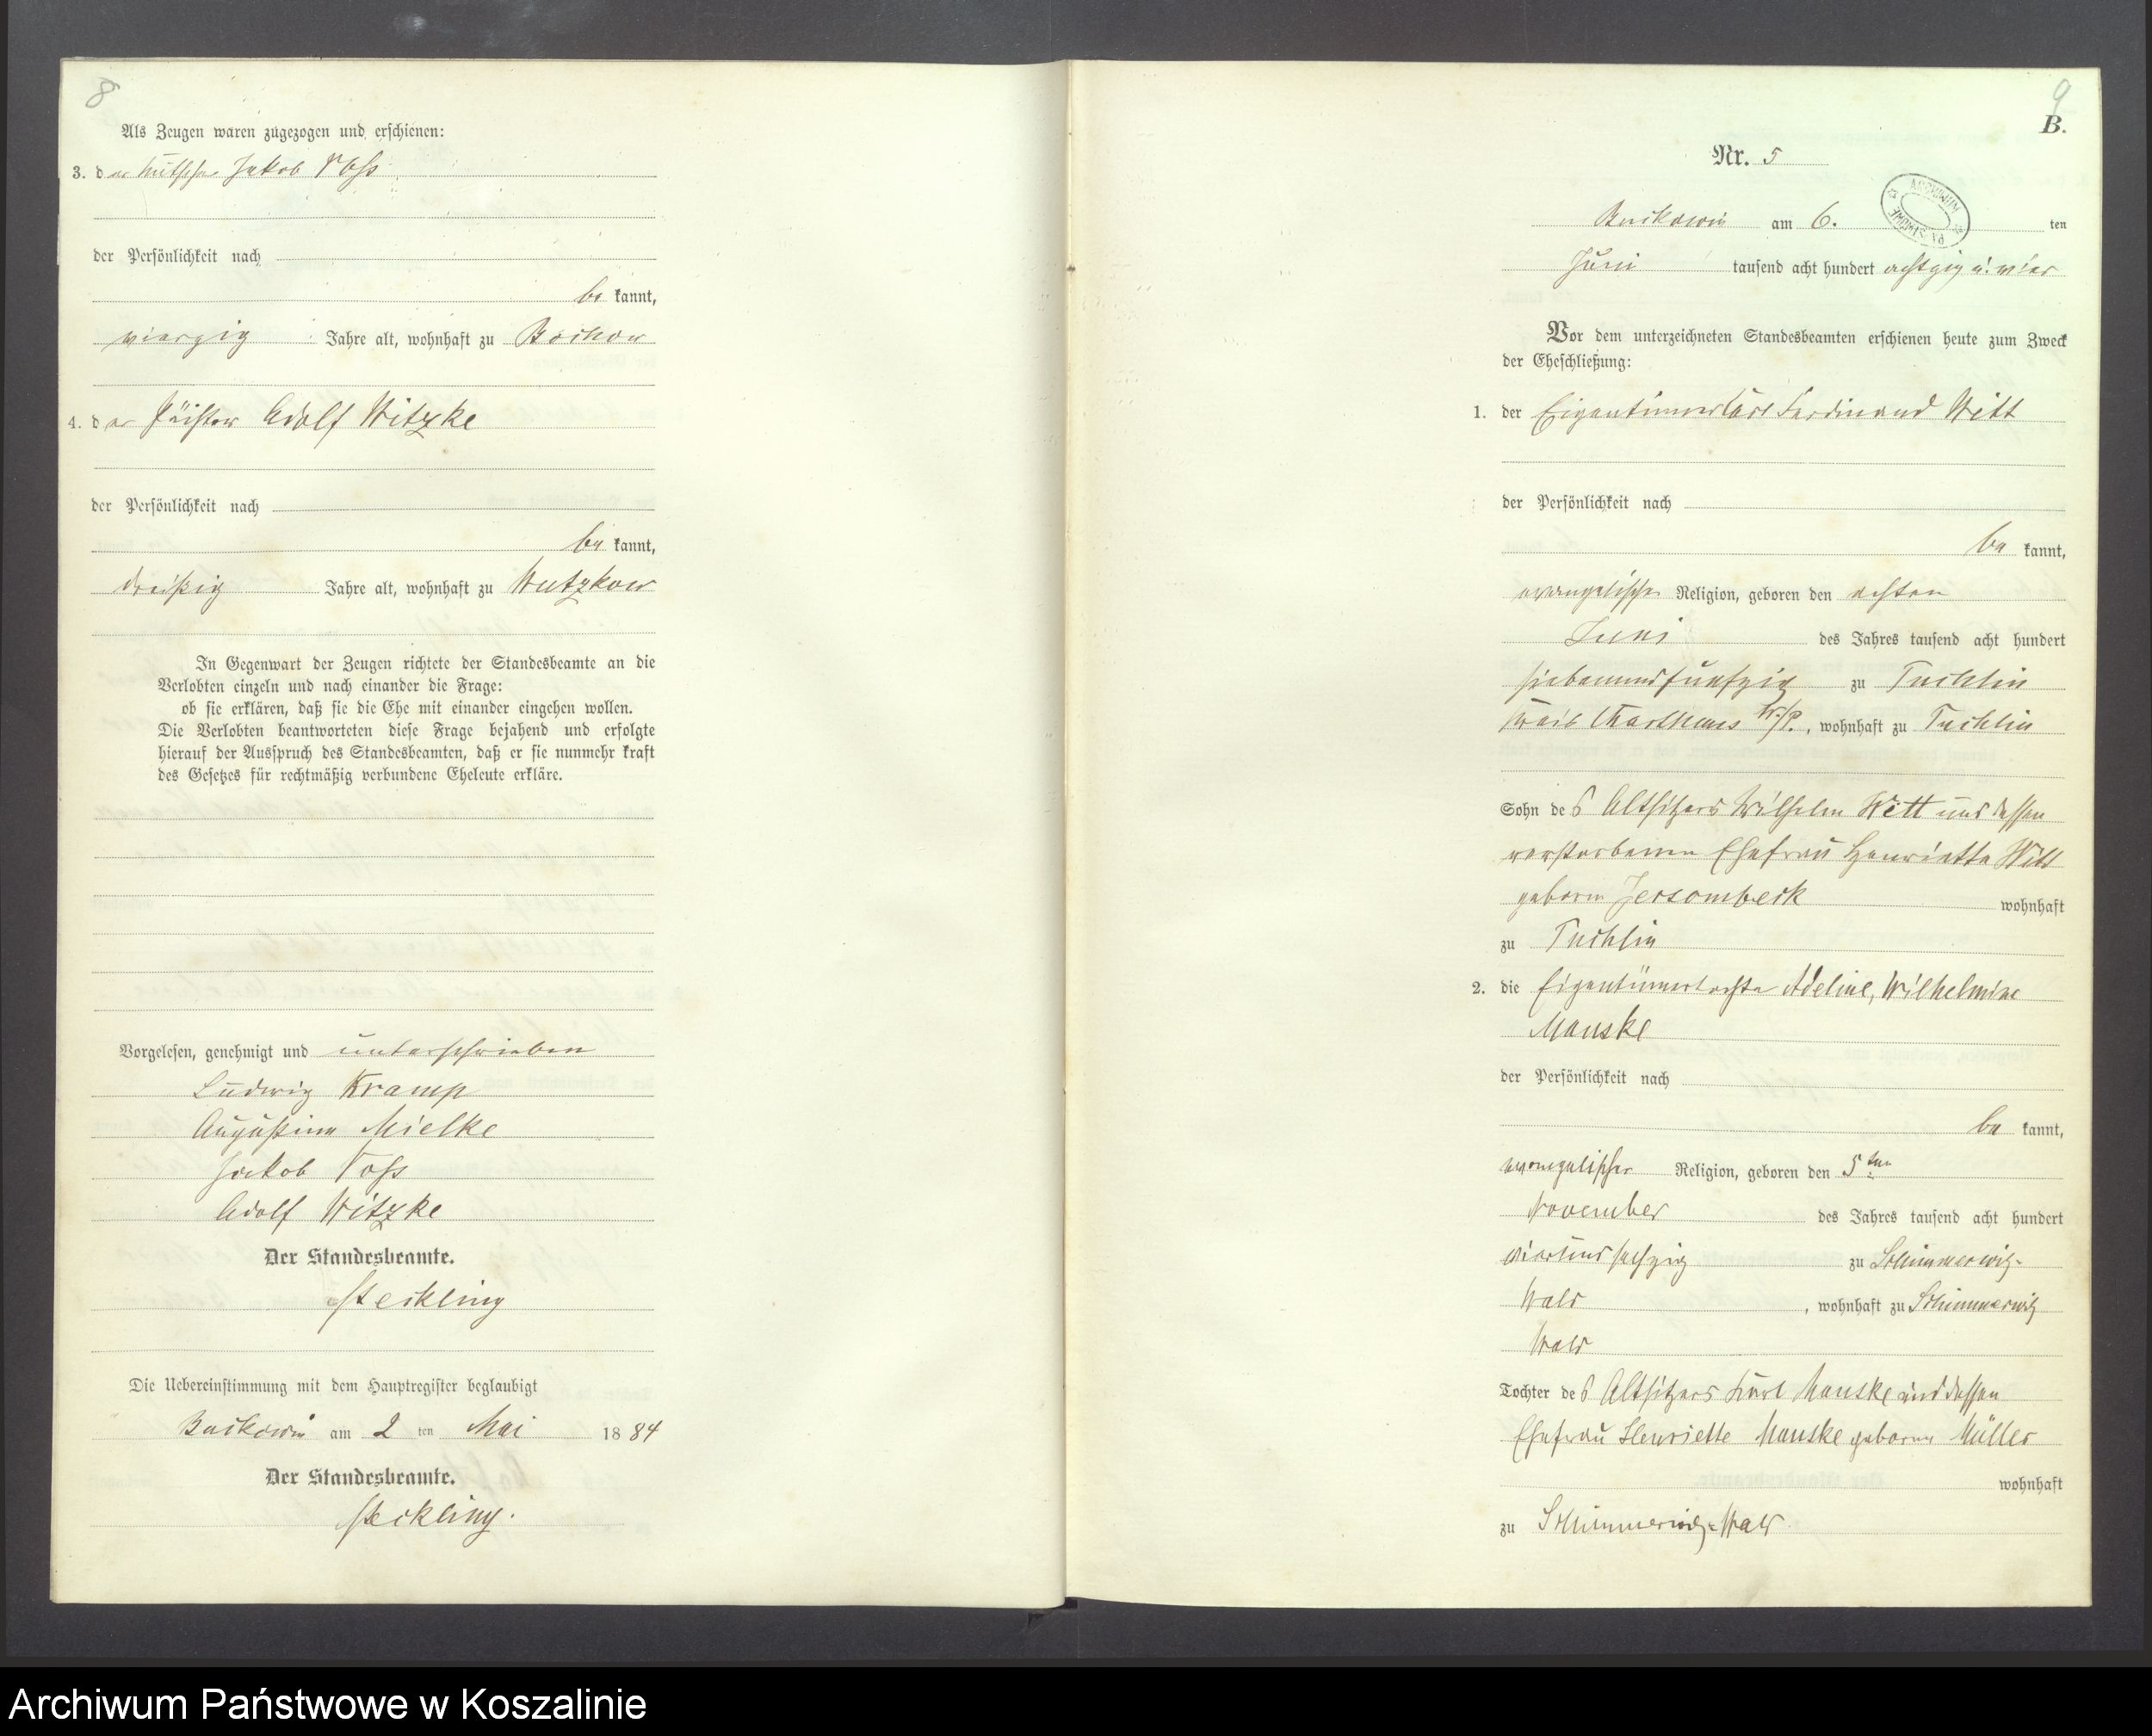 8
Als Zeugen waren zugezogen und erschienen:
3. der Kutscher Jakob Voss
der Persönlichkeit nach
be kannt,
vierzig Jahre alt, wohnhaft zu Bochow
4. der Adolf Witzke
der Persönlichkeit nach
be kannt,
dreißig Jahre alt, wohnhaft zu Wutzkow
In Gegenwart der Zeugen richtete der Standesbeamte an die
Verlobten einzeln und nach einander die Frage:
ob sie erklären, daß sie die Ehe mit einander eingehen wollen.
Die Verlobten beantworteten diese Frage bejahend und erfolgte
hierauf der Ausspruch des Standesbeamten, daß er sie nunmehr kraft
des Gesetzes für rechtmäßig verbundene Eheleute erkläre.
Vorgelesen, genehmigt und unterschrieben
Ludwig Kramp
Augustine Mielke
Jakob Voss
Adolf Witzke
Der Standesbeamte.
Steckling
Die Uebereinstimmung mit dem Hauptregister beglaubigt
Buckowin am 2 ten Mai 18 84
Der Standesbeamte.
Steckling.
9
B.
Nr. 5
Buckowin am 6. ten
Juni tausend acht hundert achtzig u. vier
Vor dem unterzeichneten Standesbeamten erschienen heute zum Zweck
der Eheschließung:
1. der Eigentümer Carl Ferdinand Witt
der Persönlichkeit nach
be kannt,
evangelischer Religion, geboren den achten
Juni des Jahres tausend acht hundert
siebenundfünfzig zu Tuchlin
Kreis Karthaus W./P., wohnhaft zu Tuchlin
Sohn des Altsitzers Wilhelm Witt und dessen
verstorbenen Ehefrau Henriette Witt
geboren Jersombeck wohnhaft
zu Tuchlin
2. die Eigentümertochter Adeline, Wilhelmine
Manske
der Persönlichkeit nach
be kannt,
evangelischer Religion, geboren den 5ten
November des Jahres tausend acht hundert
vierundsechzig zu Schimmerwitz-
Wald, wohnhaft zu Schimmerwitz
Wald
Tochter des Altsitzers Karl Manske und dessen
Ehefrau Henriette Manske geboren Müller
wohnhaft
zu Schimmerwitz-Wald
Archiwum Państwowe w Koszalinie